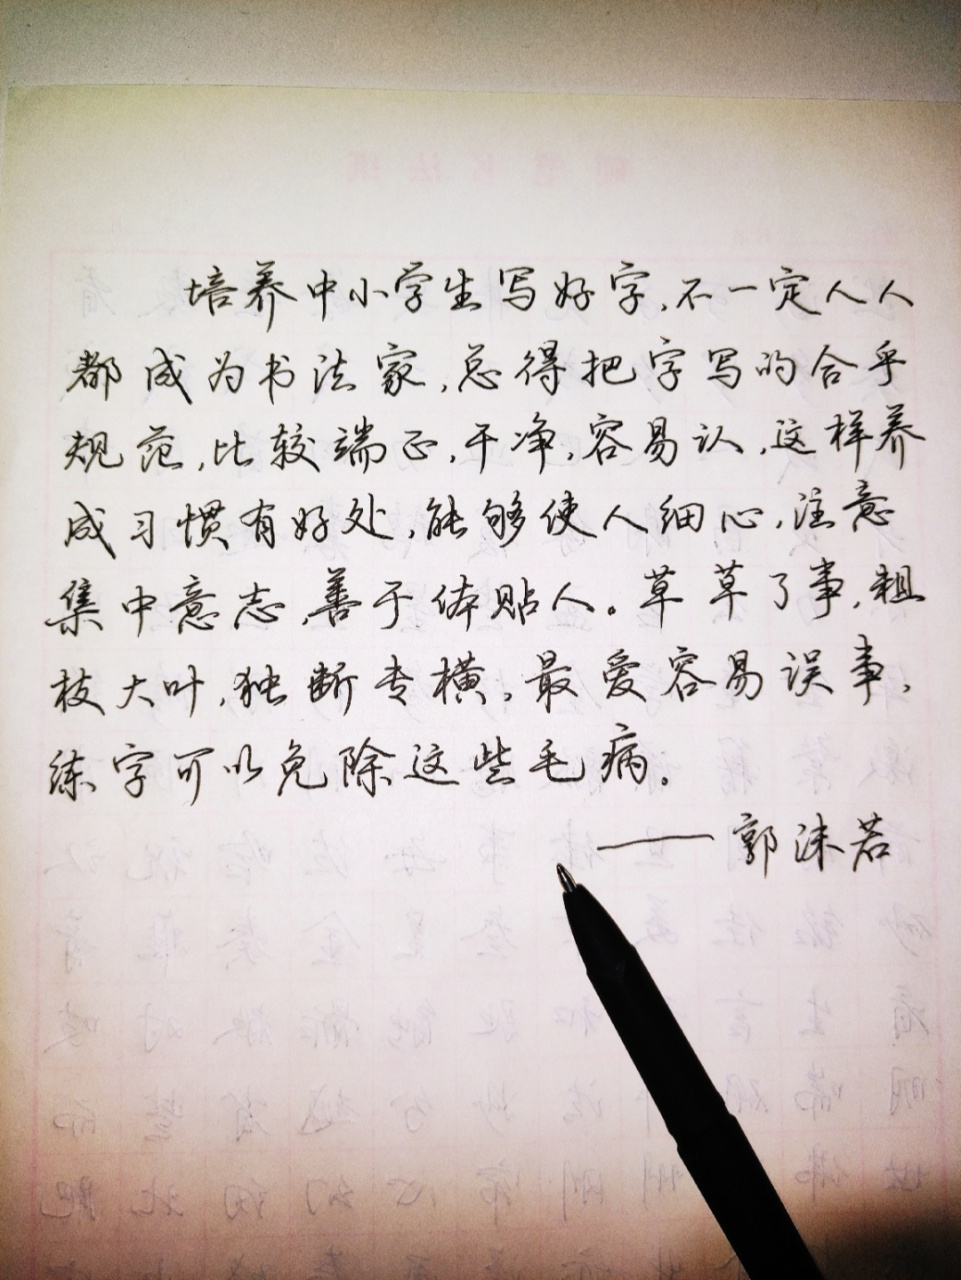 培养中小学生写好字,不一定人人
都成为书法家,总得把字写的合乎
规范,比较端正,干净,容易认,这样养
成习惯有好处,能够使人细心,注意
集中意志,善于体贴人。草草了事,粗
枝大叶,独断专横,最爱容易误事,
练字可以免除这些毛病。
——郭沫若